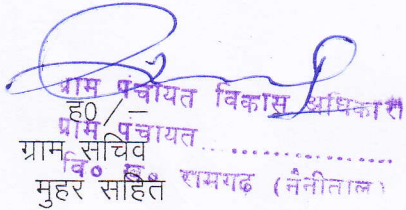 ग्राम पंचायत विकास अधिकारी
ह0/—
ग्राम पंचायत..................
ग्राम सचिव
वि० ख०. रामगढ़ (नैनीताल)
मुहर सहित